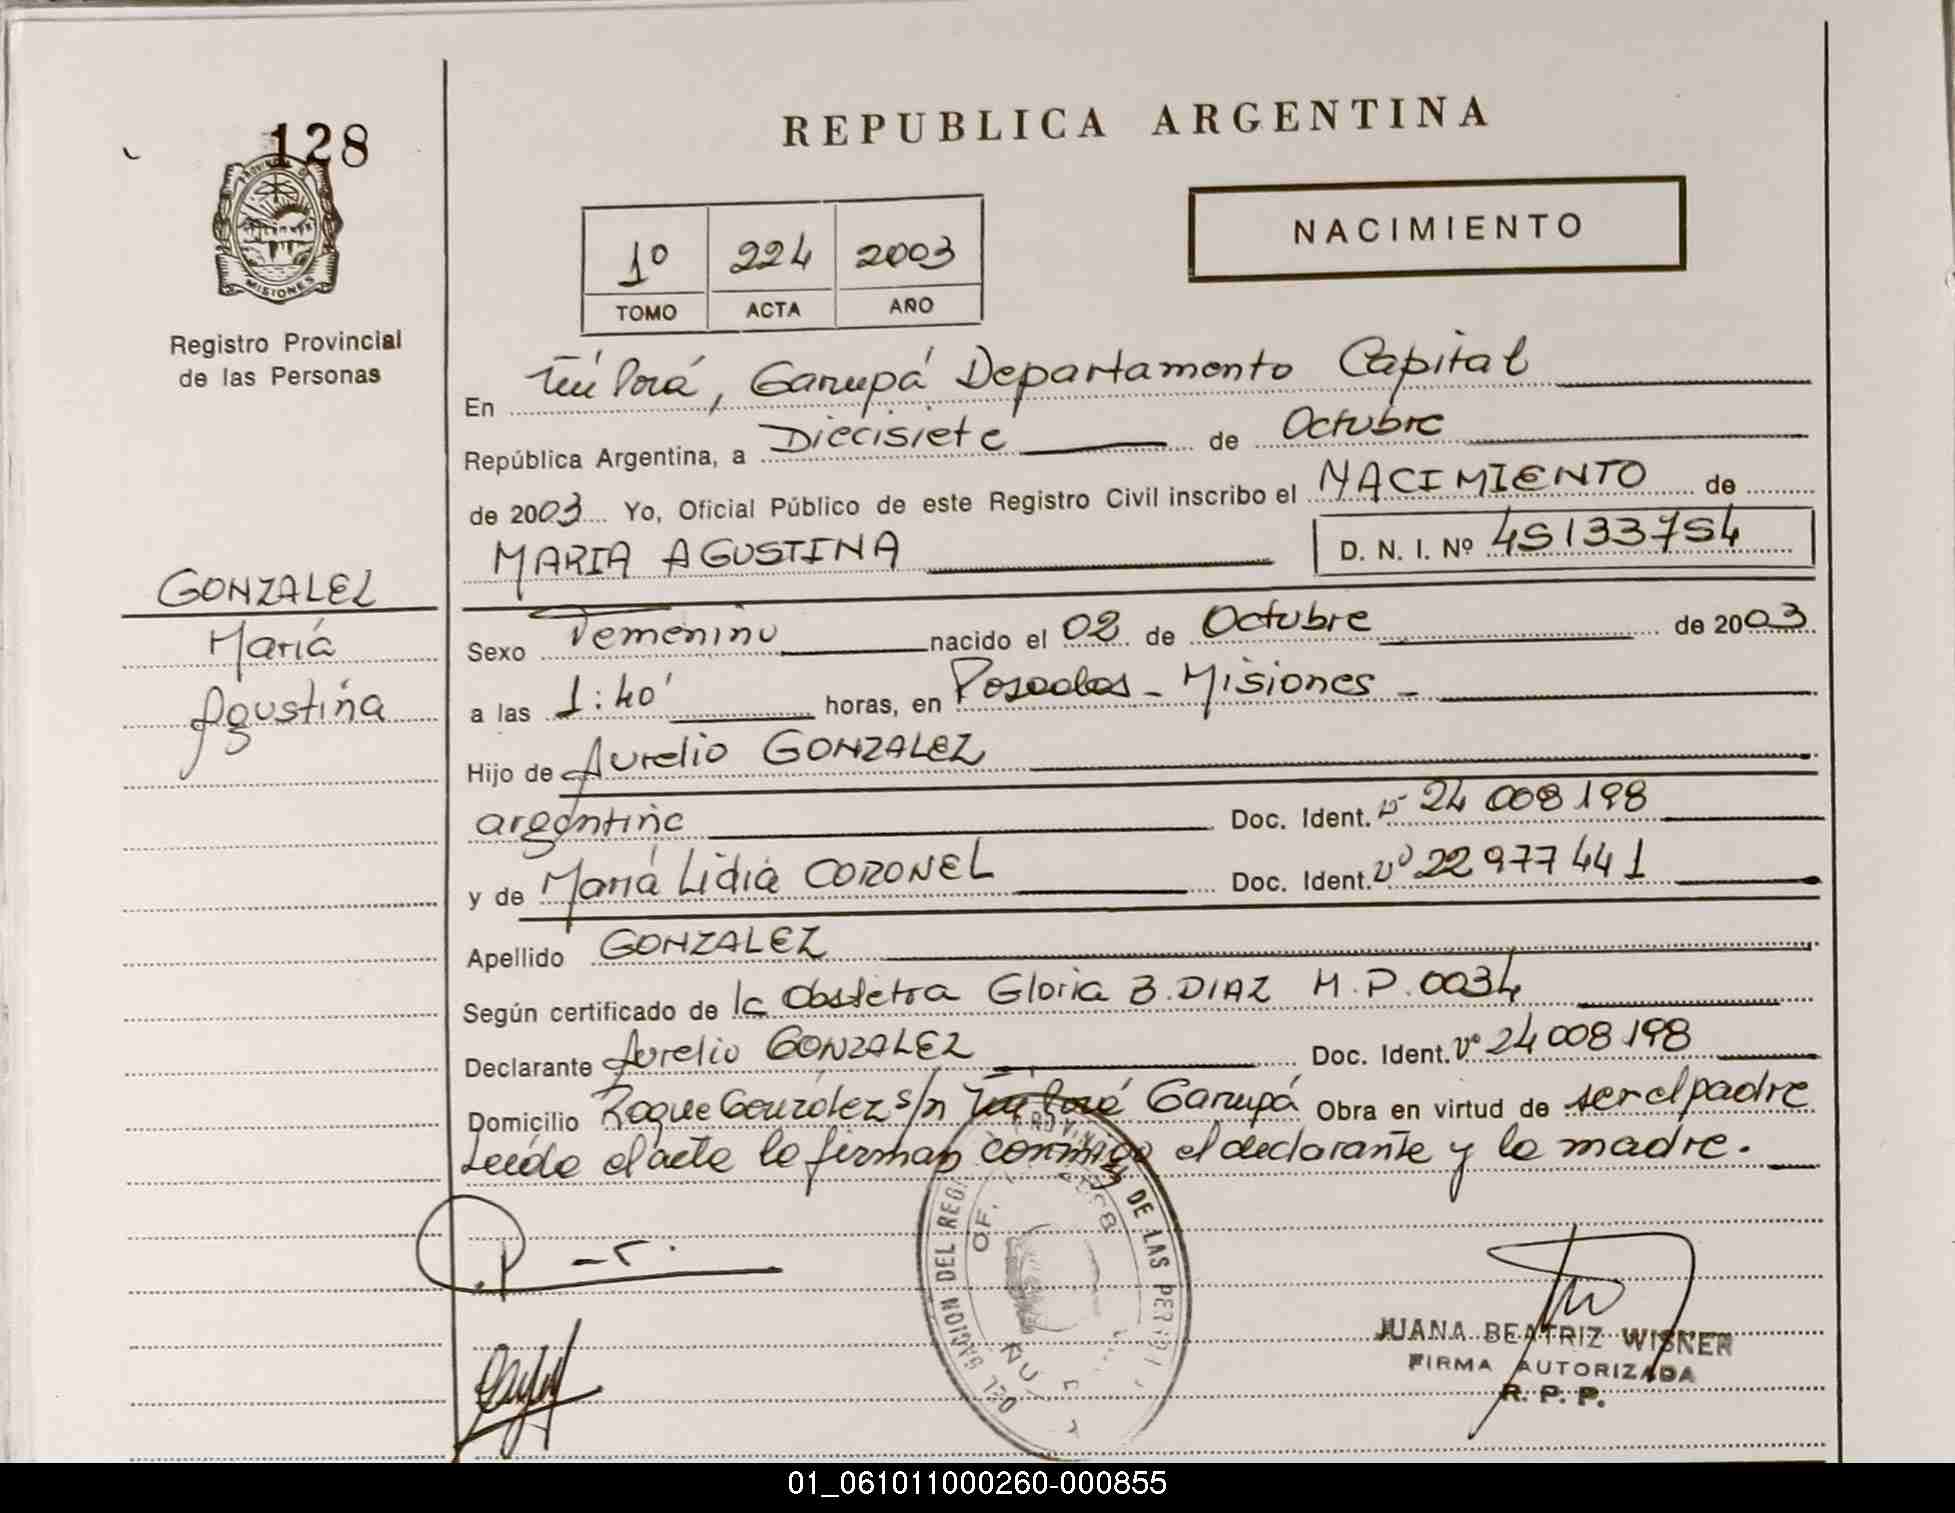 128
PROVINCIA DE
MISIONES
Registro Provincial
de las Personas
REPUBLICA ARGENTINA
1º 224 2003
TOMO ACTA AÑO
NACIMIENTO
En Ñu Porá, Garupá Departamento Capital
República Argentina, a Diecisiete de Octubre
de 2003 Yo, Oficial Público de este Registro Civil inscribo el NACIMIENTO de
MARIA AGUSTINA D. N. I. Nº 45133754
GONZALEZ
María
Agustina
Sexo Femenino nacido el 02 de Octubre de 2003
a las 1:40' horas, en Posadas - Misiones -
Hijo de Aurelio GONZALEZ
argentino Doc. Ident. Nº 24 008 198
y de María Lidia CORONEL Doc. Ident. Nº 22 977 441
Apellido GONZALEZ
Según certificado de la Obstetra Gloria B. DIAZ M.P. 0034
Declarante Aurelio GONZALEZ Doc. Ident. Nº 24 008 198
Domicilio Roque González s/n Ñu Porá Garupá Obra en virtud de ser el padre
Leída el acta la firman conmigo el declarante y la madre.
DE LAS
OF.
JUANA BEATRIZ WISNER
FIRMA AUTORIZADA
R. P. P.
01_061011000260-000855